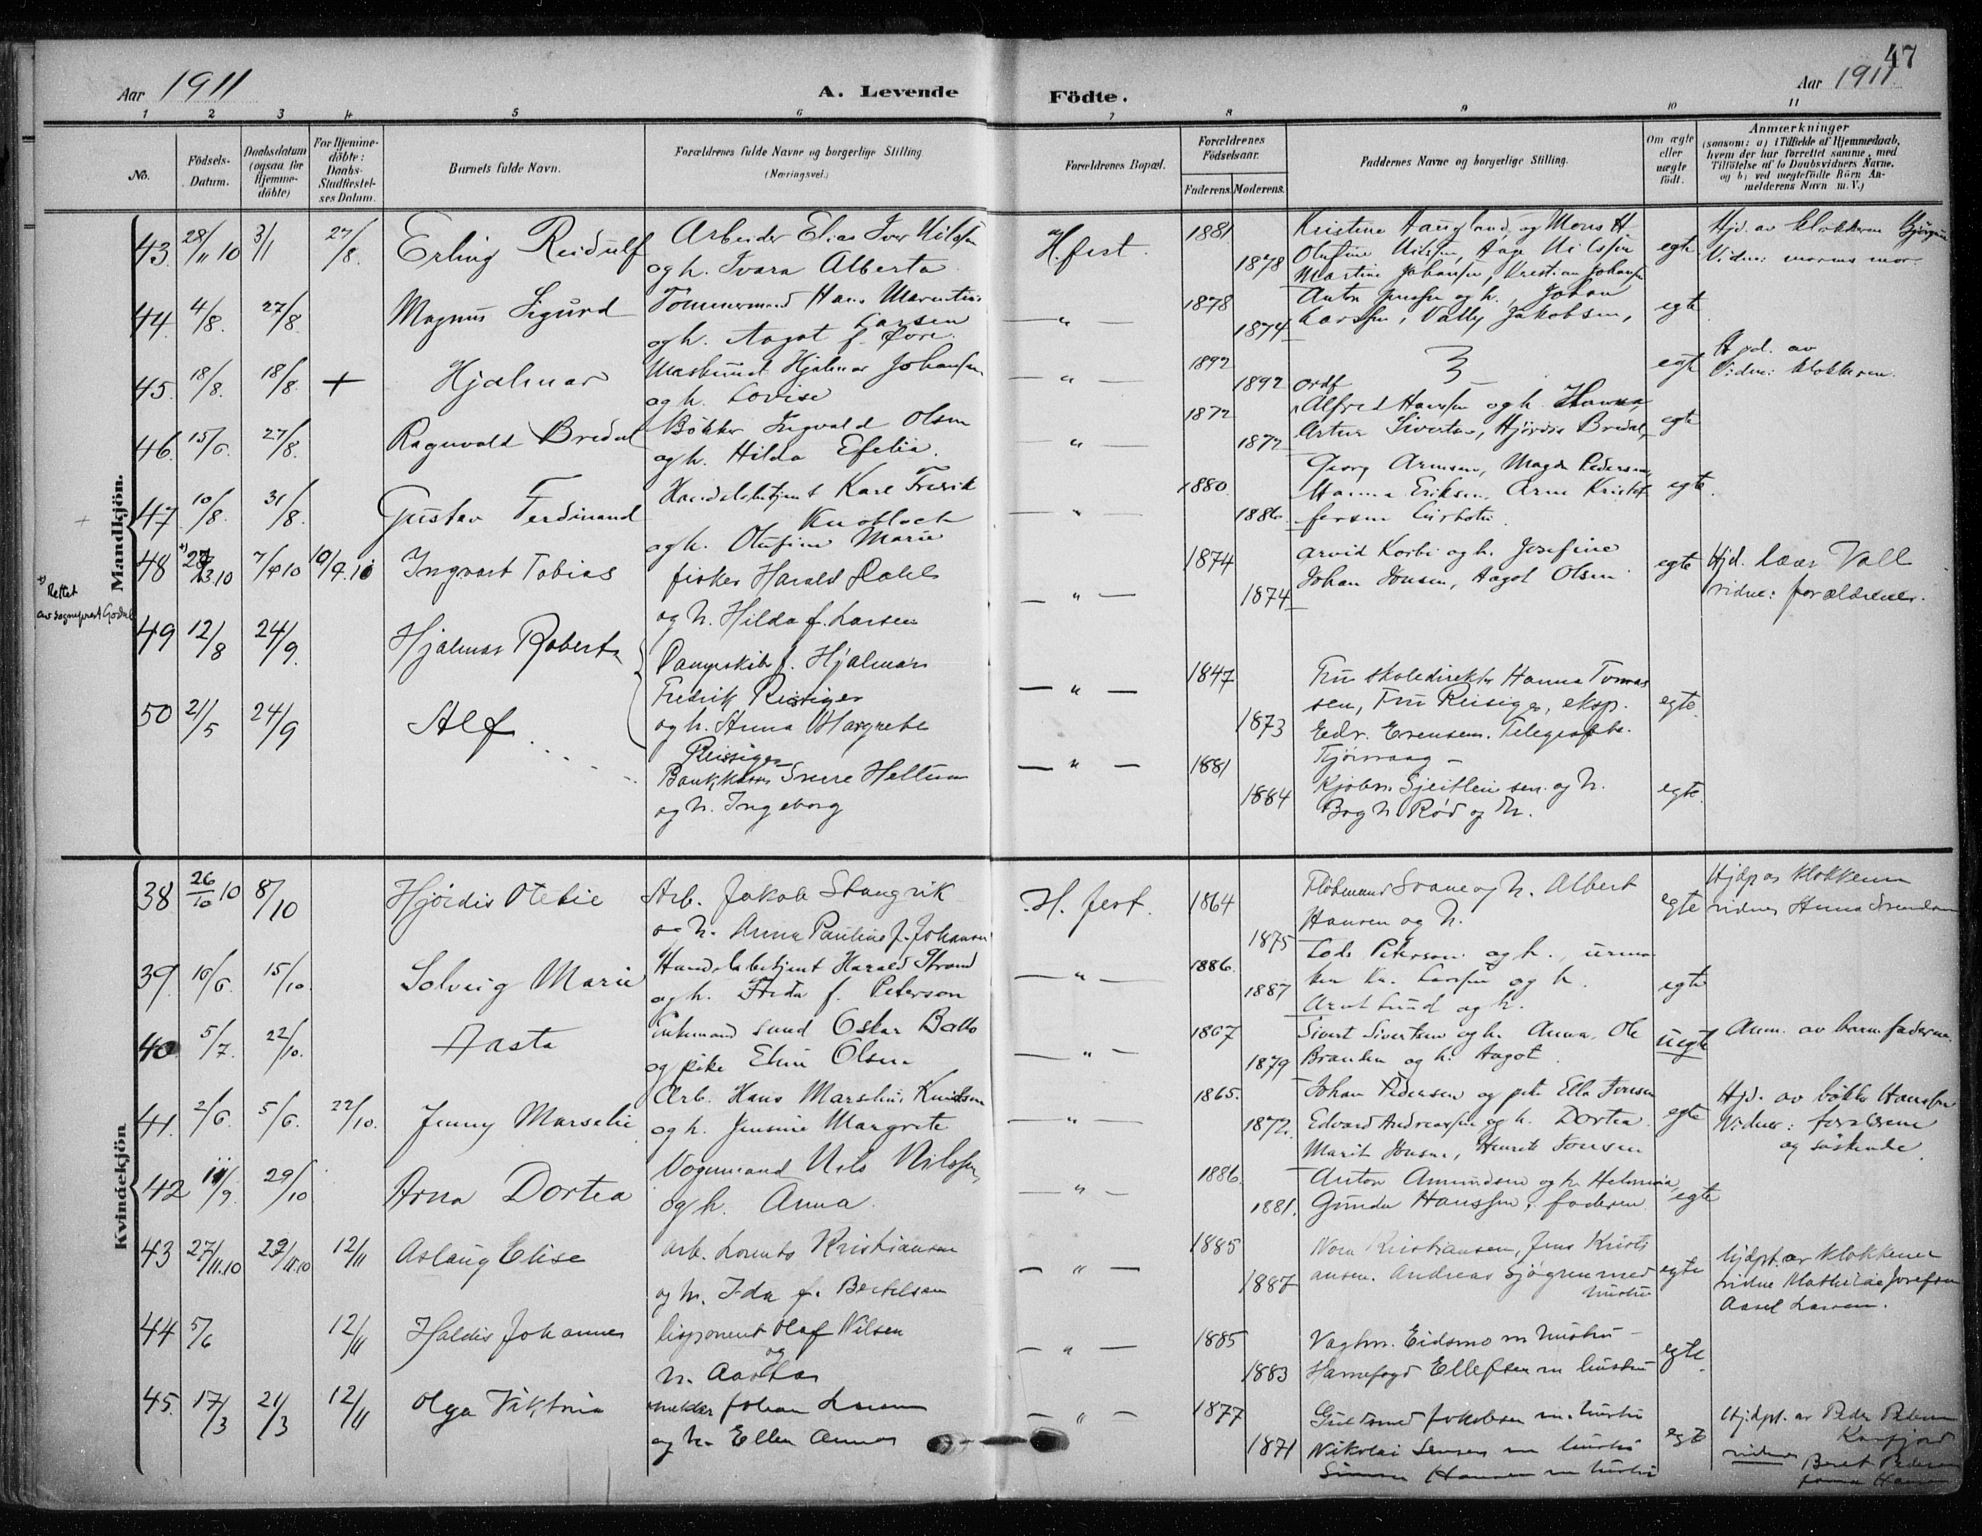 47
Aar 1911
A. Levende Födte.
Aar 1911
1 2 3 4 5 6 7 8 9 10 11
No.
Födsels-Datum.
Daabsdatum (ogsaa for Hjemmedöbte)
For Hjemmedöbte: Daabs-Stadfæstelses Datum.
Barnets fulde Navn.
Forældrenes fulde Navne og borgerlige Stilling.
(Næringsvei.)
Forældrenes Bopæl.
Forældrenes Födselsaar.
Faderens. Moderens.
Faddernes Navne og borgerlige Stilling.
Om ægte eller uægte födt.
Anmærkninger
(saasom: a) i Tilfælde af Hjemmedaab, hvem der har forrettet samme, med Tilföielse af to Daabsvidners Navne, og b) ved uægtefödte Börn Anmelderens Navn m. V.)
Mandkjön.
43. 28/11 10 3/1 27/8. Erling Reidulf Arbeider Elias Iver Nilssen H.fest. 1881 Kristine Haugland, og Mons H. egte Hjd. av klokkeren
og h. Ivara Alberta 1878 Olufine Nilssen, Aage Nilssen Vidne: mormor
Martine Johansen, Kristian Johansen
44. 4/8. 27/8. Magnus Sigurd Tømmermand Hans Larsen — " — 1878 Anton Jenssen og h., Johan egte
og h. Aagot f. Øvre. 1874 Larssen, Valley Jakobsen,
45. 18/8. 18/8. + Hjalmar Hjalmar Johansen — " — 1892 egte Hjd. av
og h. Lovise 1892 Vidne: klokkeren.
46. 15/6. 27/8. Ragnvald Bredal Bøkker Ingvald Olsen — " — 1872 Alfred Hanssen og h. Hanna, egte
og h. Hilda Efelia. 1872 Artur Sivertsen, Hjørdis Bredal,
47 10/8. 31/8. Gustav Ferdinand Handelsbetjent Karl Fredrik Knobloch — " — 1880. Georg Arnesen, Magda Pedersen, egte.
og h. Olufine Marie 1886. Hanna Eriksen, Arne Kristof
fersen
48 27/3.10 7/4 10 10/9.11 Ingvart Tobias fisker Harald Dahl — " — 1874 Arvid Korbi og h. Josefine egte Hjd. Lærer Vall
og h. Hilda f. Larsen 1874 Johan Jonsen, Aagot Olsen vidne: forældrene.
Rettet
av sogneprest Godal
49 12/8 24/9. Hjalmar Robert Dampskibsf. Hjalmar — " — 1847 Fru skoledirektør Hanna Tomas
Fredrik Reisiger 1873 sen, Fru Reisiger, eksp. egte.
og h. Anna Margrete Edv. Evensen. Telegrafbe.
Reissiger
50 21/5 24/9 Alf Bankkass Sverre Heltum — " — 1881
og h. Ingeborg 1884 Kjøbm. sen. og h. egte.
Rød og h.
Kvindekjön
38 26/10 10 8/10 Hjördis Otelie Arb. Jakob Stangvik H. fest. 1864 Fløtmand Svane og h. Albert egte Hjdp av klokkeren
og h. Anna Pauline f. Johansen 1875 Hansen og h. vidner Anna Svendsen
39. 10/6. 15/10. Solveig Marie Handelsbetjent Harald Strand — " — 1886. Lods Peterson og h., urma egte
og h. Frida f. Peterson 1887 ker Kr. Larssen og h.
Arnt Lund og h.
40 5/7. 22/10. Aasta Enkemand Lund Oskar — " — 1867 Sivert Sivertsen og h. Anna, Ole uegte Anm. av barnefaderen.
og pike Eline Olsen 1879 Brandsen og h. Aagot.
41. 2/6. 5/6. 22/10. Jenny Marselie Arb. Hans Marselius Knudsen — " — 1865. Johan Pedersen og pike Ella Jonsen egte Hjd. av bøkker Hanssen
og h. Jensine Margrete 1872. Edvard Andreassen og h. Dortea Vidner: forældrene
Marit Jonsen, Henrik Jonsen og søskende.
42 11/9. 29/10 Arna Dortea Vognmand Nils Nilssen — " — 1886. Anton Amundsen og h. Helmina, egte
og h. Anna. 1881. Gunda Hanssen, faderen
43 27/11.10 29/11.10 12/11 Aslaug Elise Arb. Lorents Kristiansen — " — 1885 Nora Kristiansen, Jens Kristi egte hjdpt. av klokkeren
og h. Ida f. Bertelsen 1887 ansen. Andreas Sjögren med hustru vidne Mathilde Josefsen
Aasel Larsen.
44 5/6 12/11 Haldis Johannes Disponent Olaf Nilsen — " — 1885 Vagtm. Eidsmo m hustru — egte.
og h. Aasta 1883 Havnefogd Ellefsen m hustru
45. 17/3 21/3 12/11 Olga Viktoria Johan Larsen — " — 1877 Guldsmed Jakobsen m. hustru egte Hjdpt. av Peder Pedersen
og h. Ellen Anna 1871 Nikolai Jensen m hustru Korsfjord
Hansen m hustru vidner Beret Pedersen